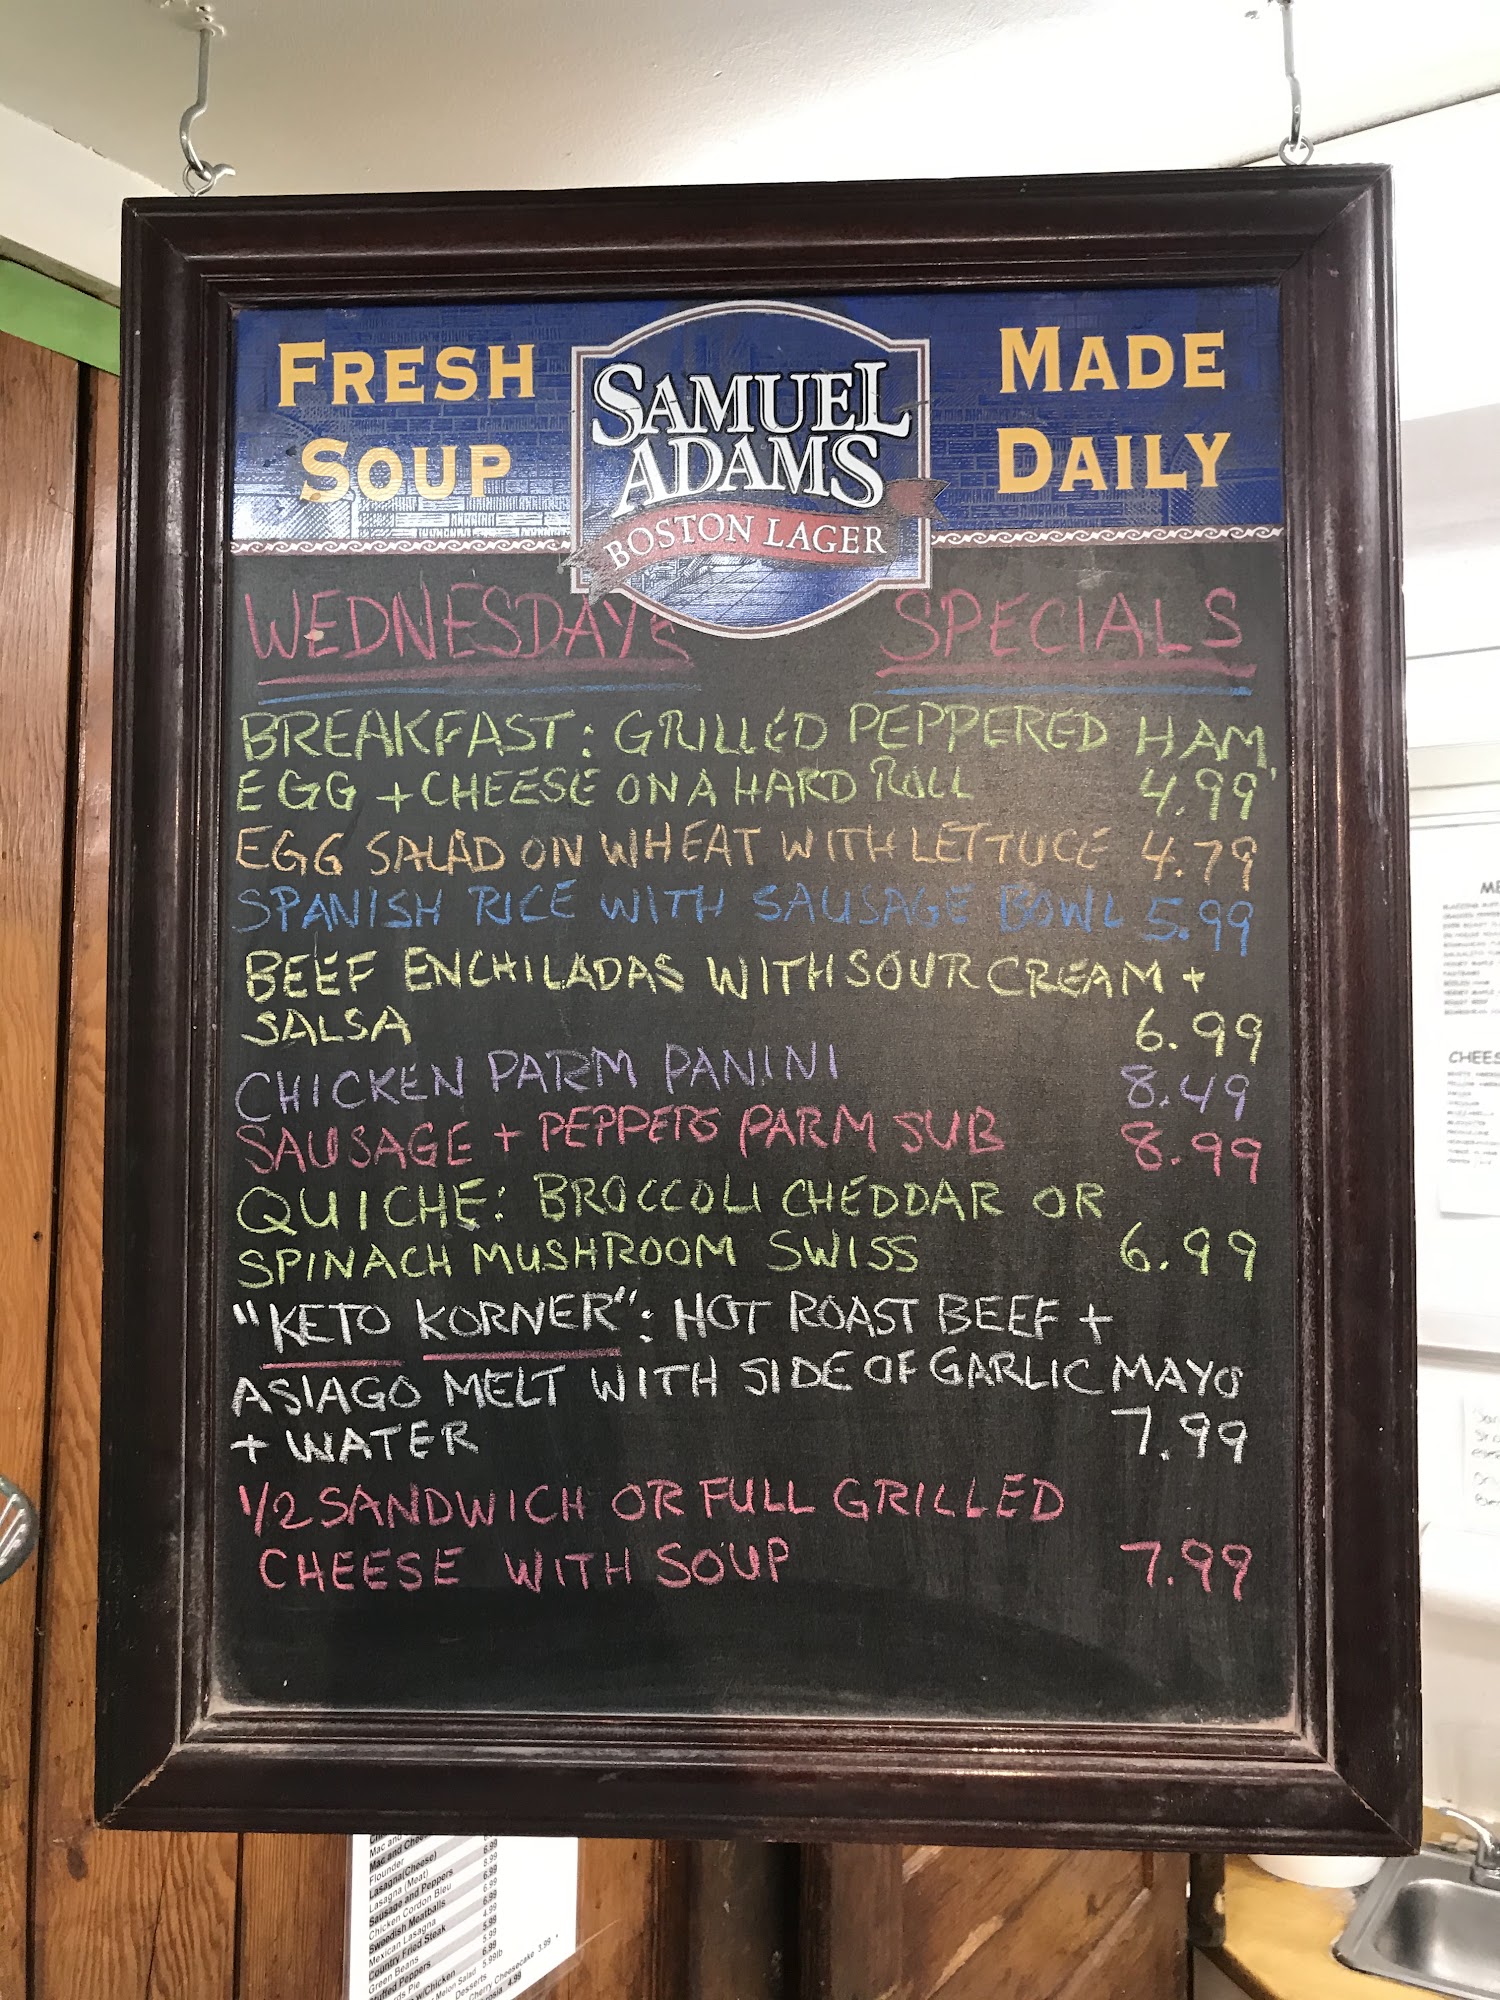 FRESH SOUP
SAMUEL ADAMS
BOSTON LAGER
MADE DAILY
WEDNESDAYS SPECIALS
BREAKFAST: GRILLED PEPPERED HAM,
EGG + CHEESE ON A HARD ROLL 4.99
EGG SALAD ON WHEAT WITH LETTUCE 4.79
SPANISH RICE WITH SAUSAGE BOWL 5.99
BEEF ENCHILADAS WITH SOUR CREAM +
SALSA 6.99
CHICKEN PARM PANINI 8.49
SAUSAGE + PEPPERS PARM SUB 8.99
QUICHE: BROCCOLI CHEDDAR OR
SPINACH MUSHROOM SWISS 6.99
"KETO KORNER": HOT ROAST BEEF +
ASIAGO MELT WITH SIDE OF GARLIC MAYO
+ WATER 7.99
1/2 SANDWICH OR FULL GRILLED
CHEESE WITH SOUP 7.99
Mac and Cheese
Flounder
Lasagna(Cheese)
Lasagna (Meat)
Sausage and Peppers
Chicken Cordon Bleu
Swedish Meatballs
Mexican Lasagna
Country Fried Steak
Green Beans
Peppers
Pie
w/Chicken
Melon Salad 5.99lb
Desserts
Cherry Cheesecake 3.99
4.99
CHEES